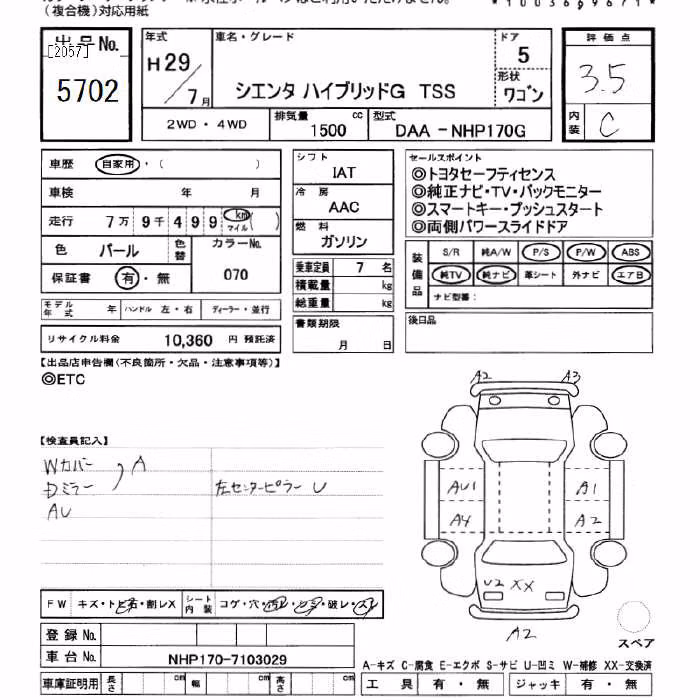 (複合機)対応用紙
*1003699671*
出品No.
[2057]
5702
年式
H29/7月
車名・グレード
シエンタ ハイブリッドG TSS
ドア
5
形状
ワゴン
評価点
3.5
内装
C
2WD・4WD
排気量
1500 cc
型式
DAA -NHP170G
車歴
自家用・( )
車検 年 月
走行 7万 9千 4 9 9 km マイル ( )
色 パール
色替
カラーNo.
070
保証書 有・無
モデル年式 年
ハンドル 左・右
ディーラー・並行
リサイクル料金 10,360 円 預託済
シフト
IAT
冷房
AAC
燃料
ガソリン
乗車定員 7 名
積載量 kg
総重量 kg
書類期限
月 日
セールスポイント
◎トヨタセーフティセンス
◎純正ナビ・TV・バックモニター
◎スマートキー・プッシュスタート
◎両側パワースライドドア
装備品
S/R 純A/W P/S P/W ABS
純TV 純ナビ 革シート 外ナビ エアB
ナビ型番:
後日品
【出品店申告欄(不良箇所・欠品・注意事項等)】
◎ETC
【検査員記入】
Wカバー
Dミラー
A
AU
左センターピラー U
A2 A3
AU1 A1
A4 A2
U2 XX
A2
スペア
FW キズ・トビ石・割レX
シート内装
コゲ・穴・汚レ・シミ・破レ・スレ
登録No.
車台No. NHP170-7103029
車庫証明用 長さ cm 幅 cm 高さ cm
A-キズ C-腐食 E-エクボ S-サビ U-凹ミ W-補修 XX-交換済
工具 有・無 ジャッキ 有・無